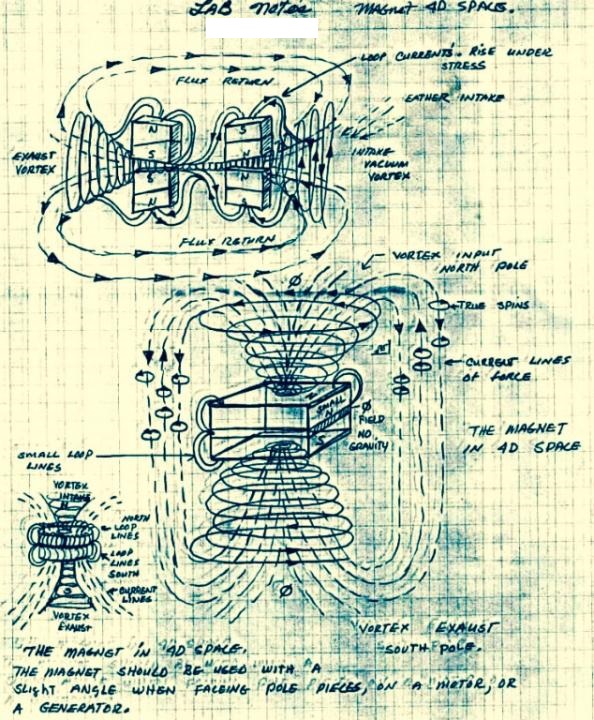 LAB NOTES MAGNET 4D SPACE.
LOOP CURRENTS RISE UNDER
STRESS
FLUX RETURN
EATHER INTAKE
N
S
S
N
S
N
N
S
EXHAUST
VORTEX
INTAKE
VACUUM
VORTEX
FLUX RETURN
VORTEX INPUT
NORTH POLE
Ø
TRUE SPINS
CURRENT LINES
OF FORCE
SMALL
N
S
Ø
FIELD
NO
GRAVITY
THE MAGNET
IN 4D SPACE
SMALL LOOP
LINES
VORTEX
INTAKE
N
NORTH
LOOP
LINES
LOOP
LINES
SOUTH
CURRENT
LINES
VORTEX
EXHAUST
Ø
VORTEX EXHAUST
SOUTH POLE.
"THE MAGNET IN 4D SPACE.
THE MAGNET SHOULD BE USED WITH A
SLIGHT ANGLE WHEN FACEING POLE PIECES, ON A MOTOR, OR
A GENERATOR.